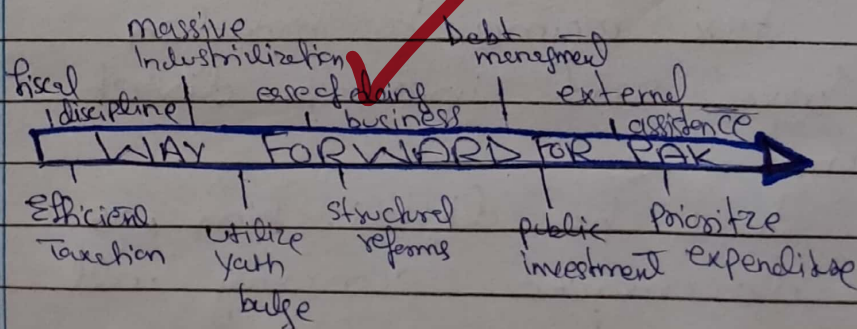 massive
Industrilization
Debt
managment
fiscal
discipline
ease of doing
business
external
assistence
WAY FORWARD FOR PAK
Efficient
Taxation
utilize
yath
bulge
structural
reforms
public
investment
Prioritze
expenditure